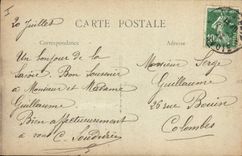 20 Juillet
CARTE POSTALE
Correspondance
Adresse
Un bonjour de la
Savoie. Bon Souvenir
à Monsieur et Madame
Guillaume
Bien affectueusement
à vous
Monsieur Serge
Guillaume
26 rue
Colombes